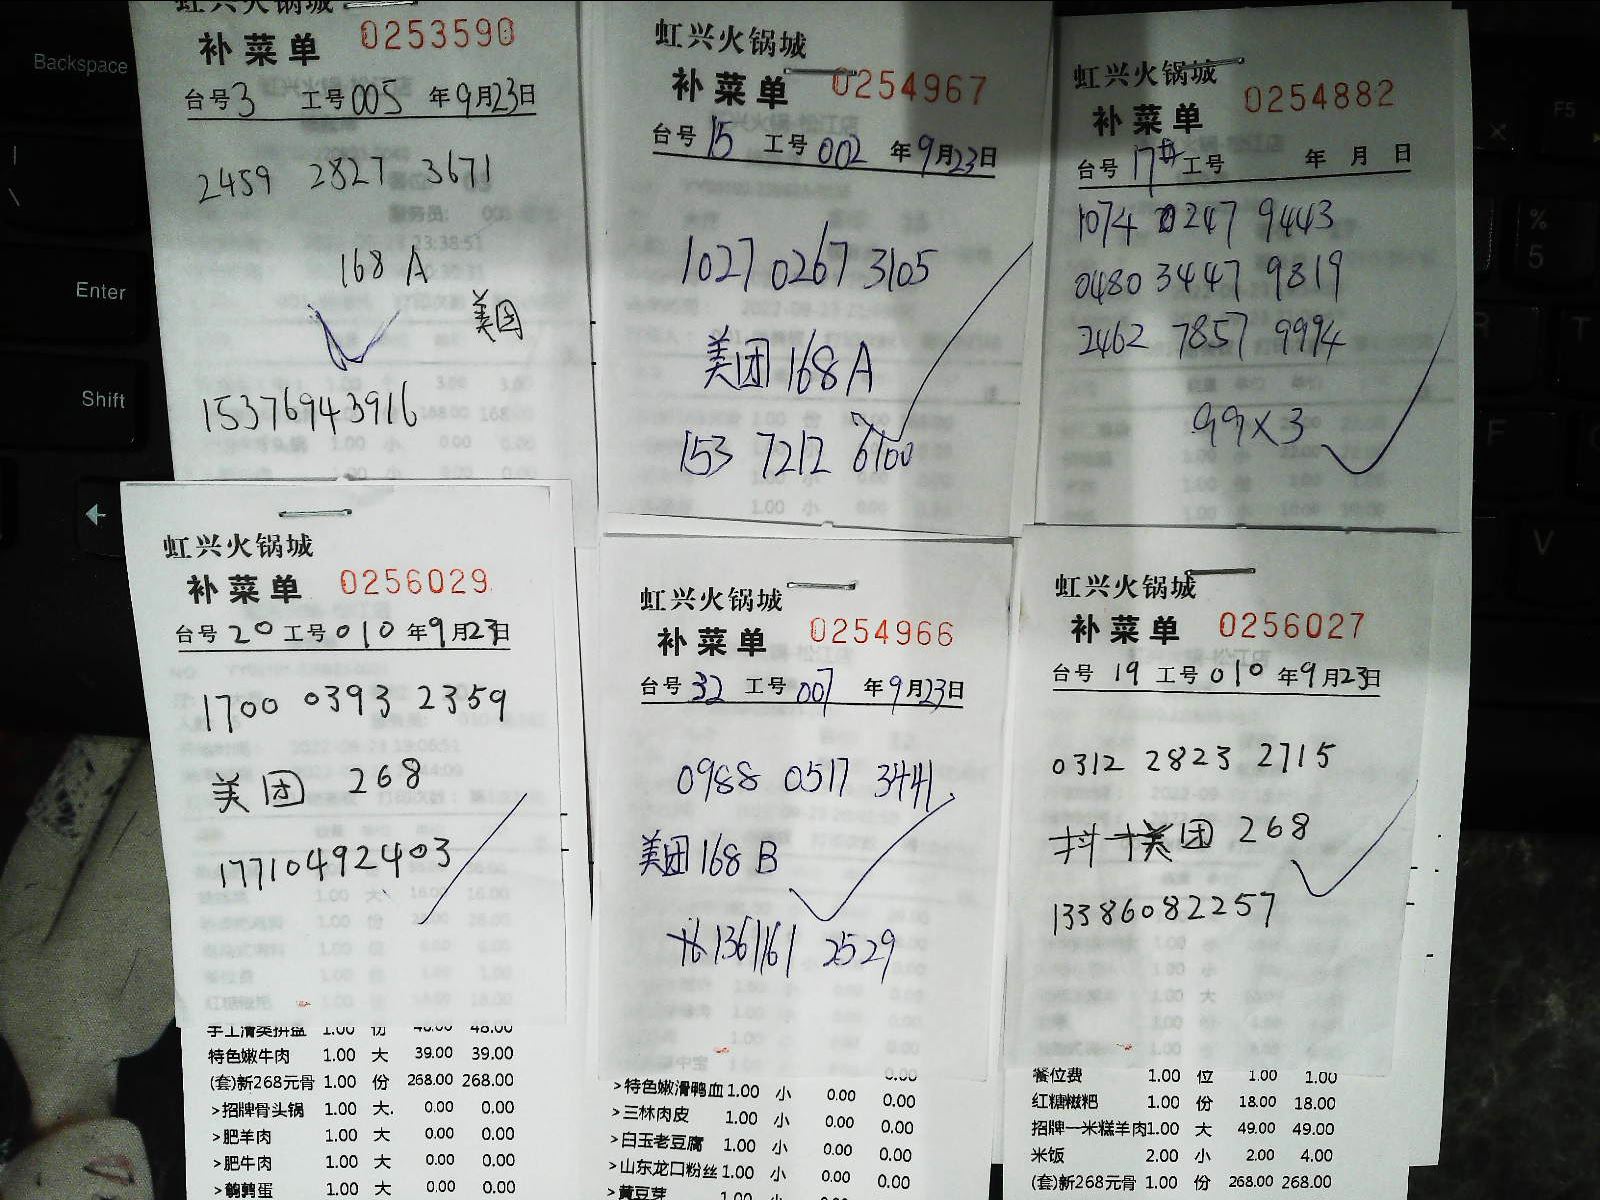 虹兴火锅城
补菜单 0253590
台号3 工号005 年9月23日
2459 2827 3671
168 A
美团
15376943916
虹兴火锅城
补菜单 0254967
台号15 工号002 年9月23日
1027 0267 3105
美团168A
153 7212 6100
虹兴火锅城
补菜单 0254882
台号17# 工号 年 月 日
1074 0247 9443
0480 3447 9819
2462 7857 9994
99×3
虹兴火锅城
补菜单 0256029
台号20 工号010 年9月23日
1700 0393 2359
美团 268
17710492403
手工滑类拼盘 1.00 份 48.00 48.00
特色嫩牛肉 1.00 大 39.00 39.00
(套)新268元骨 1.00 份 268.00 268.00
>招牌骨头锅 1.00 大. 0.00 0.00
>肥羊肉 1.00 大 0.00 0.00
>肥牛肉 1.00 大 0.00 0.00
>鹌鹑蛋 1.00 大 0.00 0.00
虹兴火锅城
补菜单 0254966
台号32 工号007 年9月23日
0988 0517 3441
美团168 B
1361161 2529
0.00
>特色嫩滑鸭血 1.00 小 0.00 0.00
>三林肉皮 1.00 小 0.00 0.00
>白玉老豆腐 1.00 小 0.00 0.00
>山东龙口粉丝 1.00 小 0.00 0.00
>黄豆芽 1.00 小 0.00 0.00
虹兴火锅城
补菜单 0256027
台号19 工号010 年9月23日
0312 2823 2715
美团 268
13386082257
餐位费 1.00 位 1.00 1.00
红糖糍粑 1.00 份 18.00 18.00
招牌一米糕羊肉1.00 大 49.00 49.00
米饭 2.00 小 2.00 4.00
(套)新268元骨 1.00 份 268.00 268.00
Backspace
Enter
Shift
F5
%
5
R
T
F
V